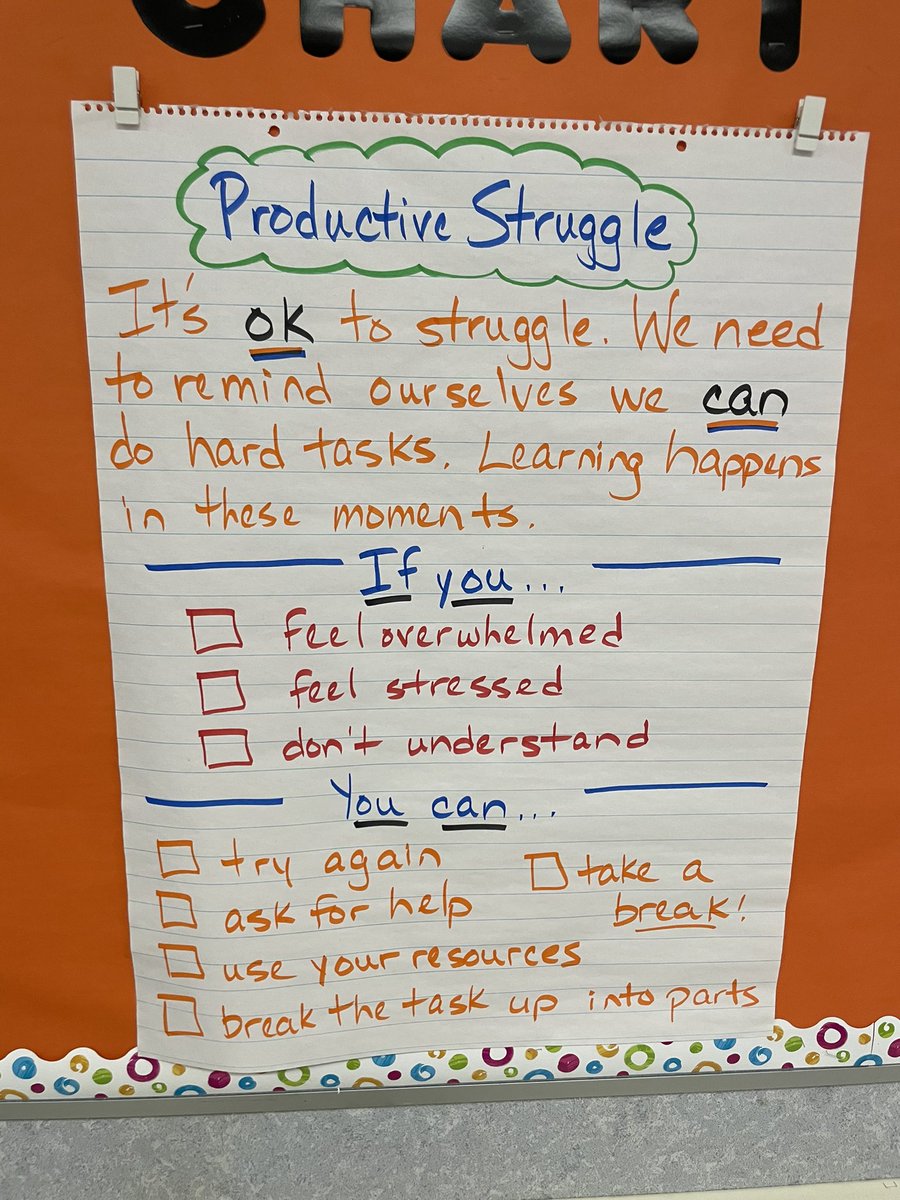 CHART
Productive Struggle
It's ok to struggle. We need
to remind ourselves we can
do hard tasks. Learning happens
in these moments.
If you...
feel overwhelmed
feel stressed
don't understand
You can...
try again
ask for help
use your resources
break the task up into parts
take a
break!